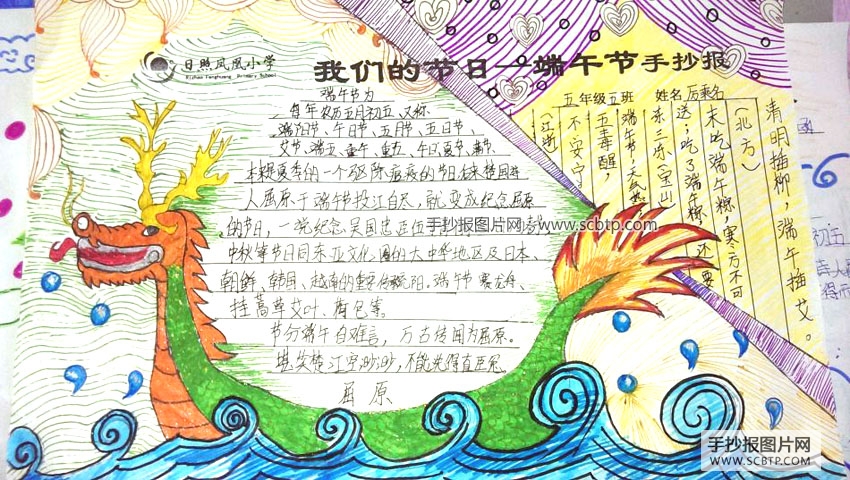 日照凤凰小学
Rizhao Fenghuang Primary School
我们的节日—端午节手抄报
五年级五班 姓名
端午节为
每年农历五月初五,又称
端阳节、午日节、五月节、五日节、
艾节、端五、重午、
夏节,
本是夏季的一个驱除瘟疫的节日,
人屈原于端午节投江自尽,就变成纪念屈原
的节日,一说纪念吴国忠
手抄报图片网
www.scbtp.com
中秋等节日同东亚文化圈的大中华地区及日本、
朝鲜、韩国、越南的重要传统
端午节 赛龙舟、
挂菖草艾叶、荷包等。
节分端午自难言,万古传闻为屈原。
堪笑楚江空渺渺,不能洗得直臣冤
屈原
清明插柳,端午插艾。
(北方)
未吃端午粽,寒衣不可
送;吃了端午粽,还要
冻三冻。
端午节,天气
五毒醒,
不安宁
(江浙)
手抄报图片网
WWW.SCBTP.COM
初五